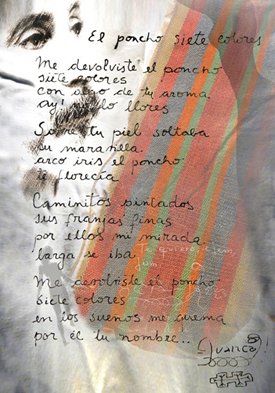 El poncho siete colores
Me devolviste el poncho
siete colores
con algo de tu aroma
ay! lo llores
Sobre tu piel soltaba
su maravilla
arco iris el poncho
te florecía
Caminitos pintados
sus franjas finas
por ellos mi mirada
larga se iba
Me devolviste el poncho
siete colores
en los sueños me quema
por él tu nombre..
Juanca